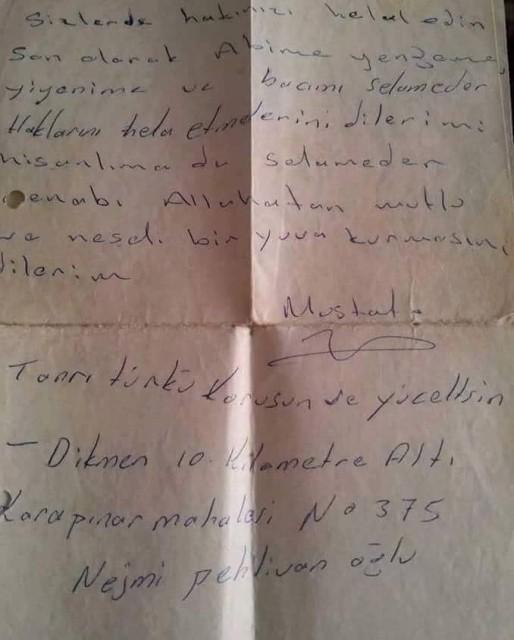 Sizlerde hakınızı helal edin
Son olarak Abime yengeme,
yiyenime ve bacımı selameder
Haklarını hela etmelerini dilerimi
nisanlıma da selameder
cenabı Allahatan mutlu
ve neşeli bir yuva kurmasını
dilerim
Mustafa
Tanrı türkü Korusun ve yüceltsin
— Dikmen 10. Kilometre Altı
Karapınar mahalesi No 375
Nejmi pehlivan oğlu